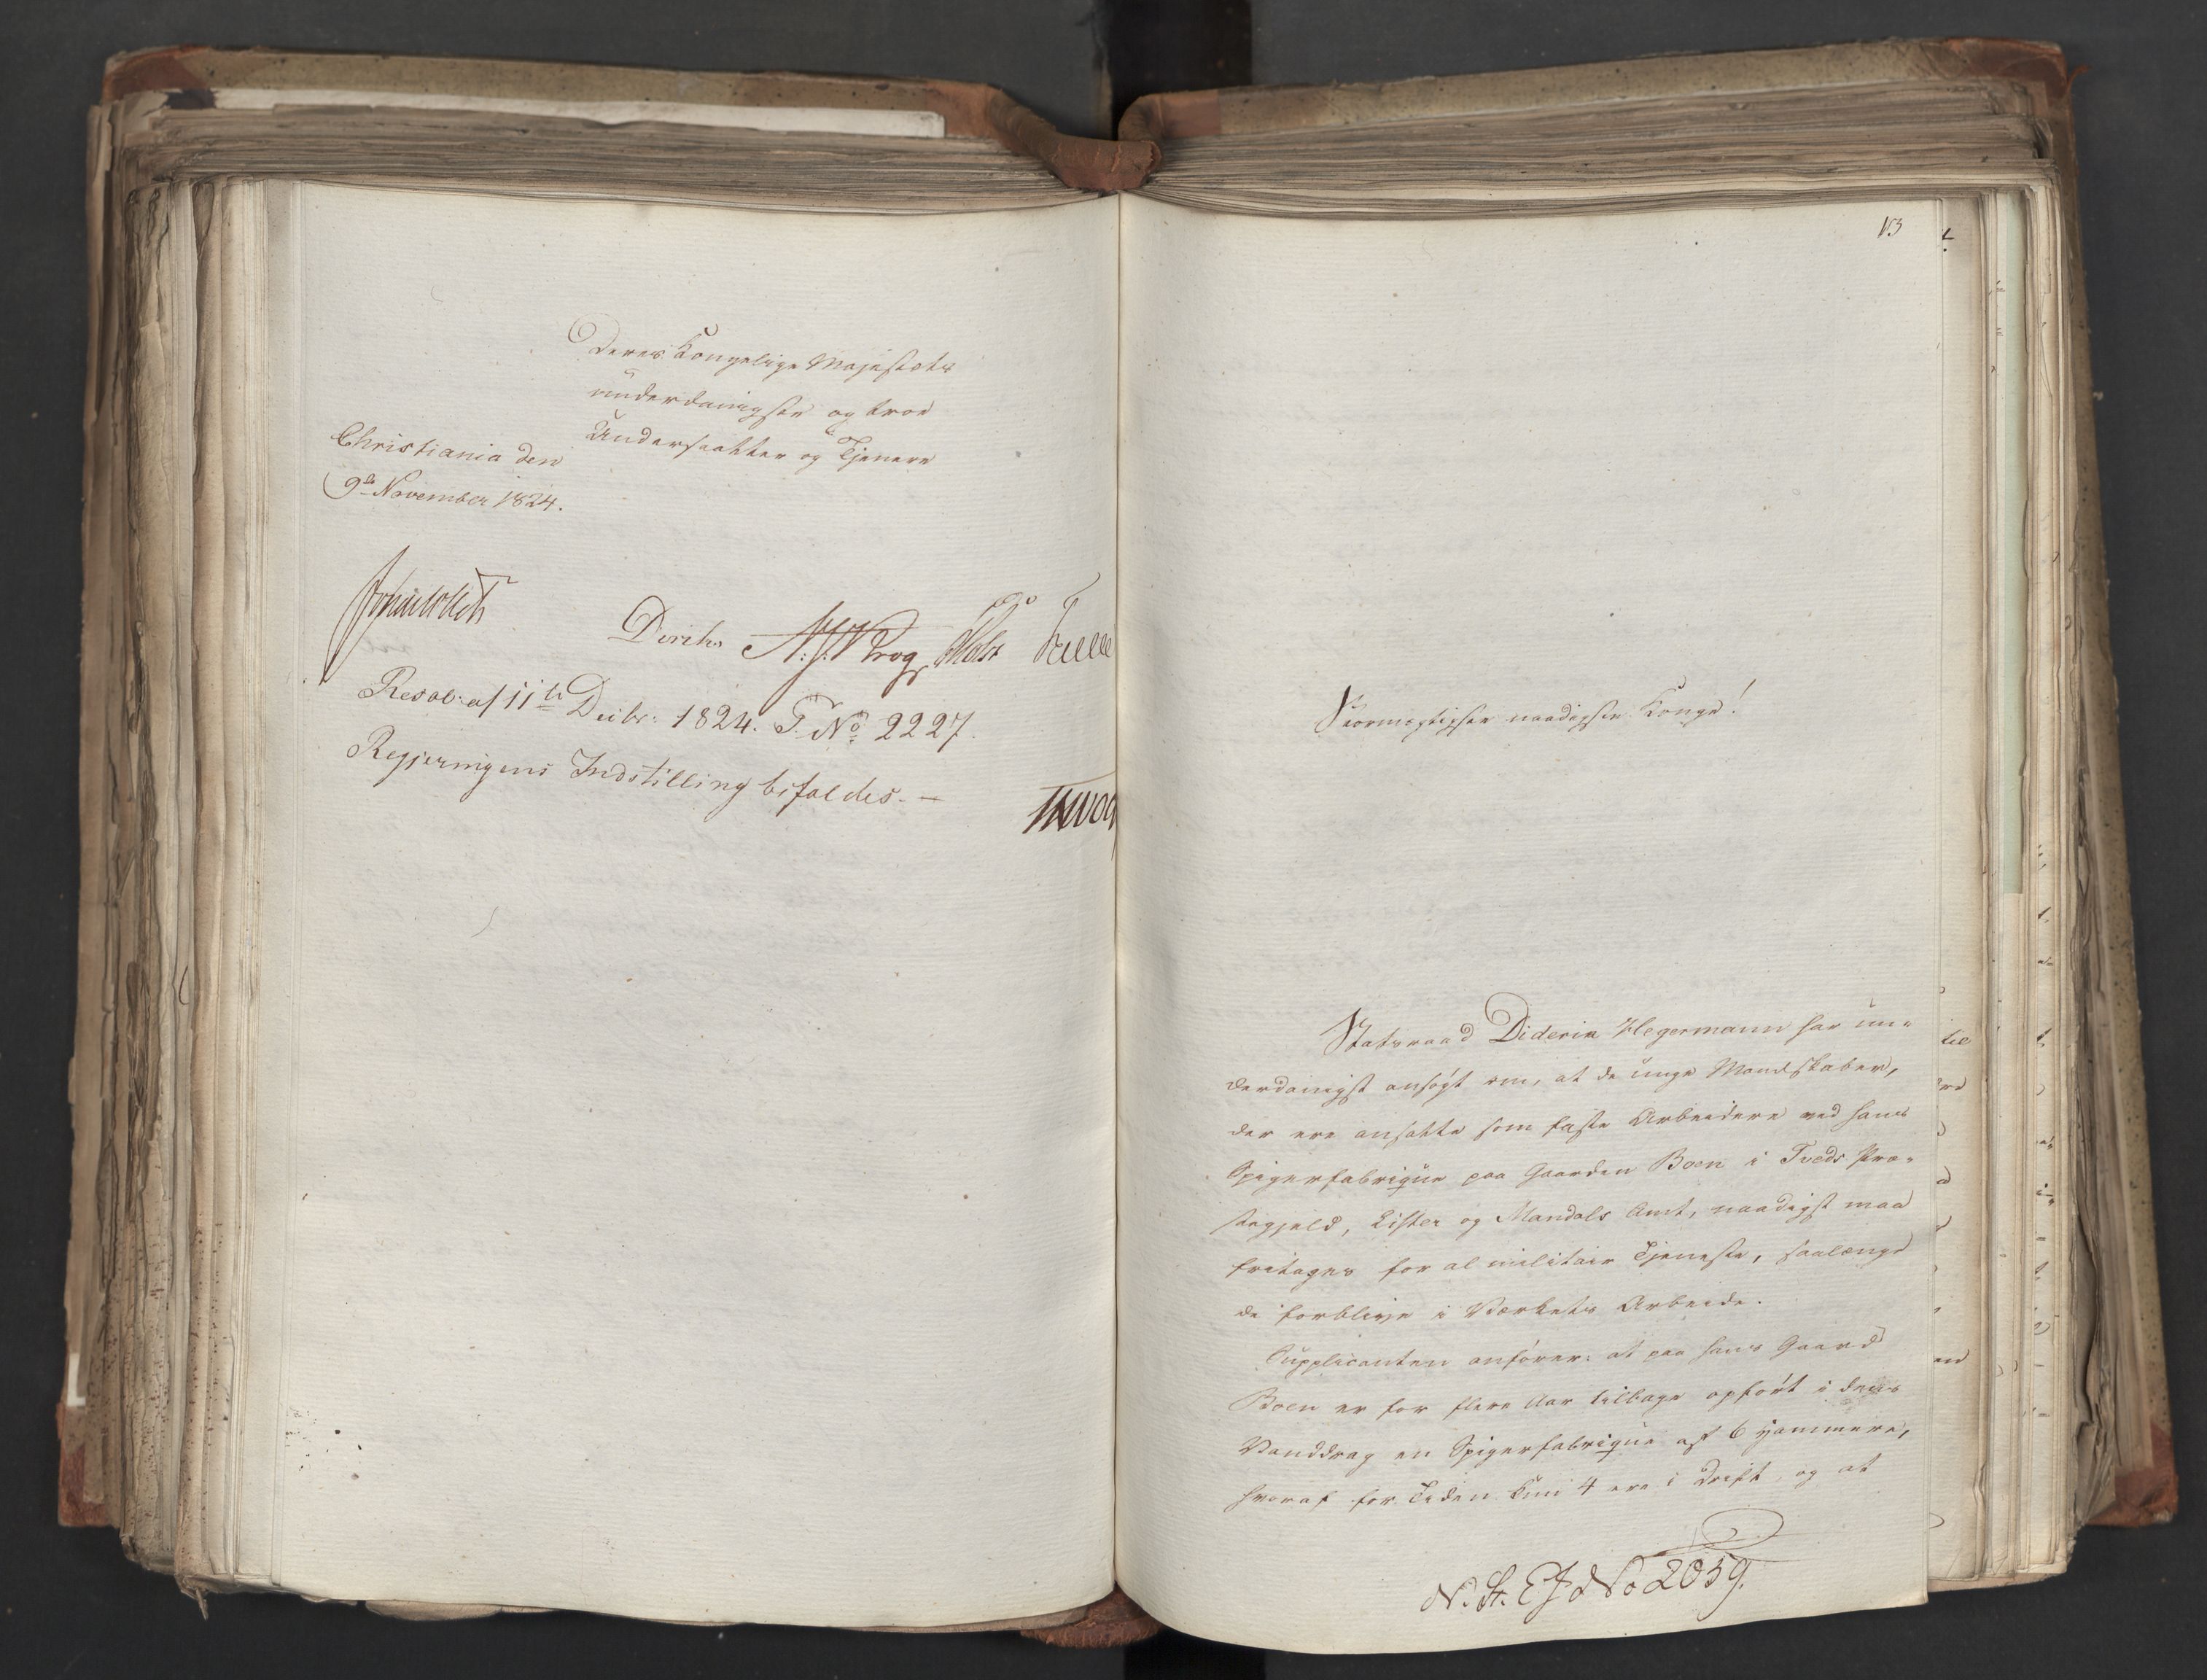 Deres Kongelige Majestæts
underdanigste og troe
Undersaatter og Tjenere
Christiania den
9de November 1824.
Diriks Holst
Resol: af 11te Decbr: 1824. P. No 2227.
Regjeringens Indstilling bifaldes. —
Stormægtigste naadigste Konge!
Statsraad Diderik Hegermann har un-
derdanigst ansøgt om, at de unge Mandskaber,
der ere ansatte som faste Arbeidere ved hans
Spigerfabrique paa Gaarden Boen i Tveds Præ-
stegjeld, Lister og Mandals Amt, naadigst maa
fritages for al militair Tjeneste, saalænge
de forblive i Værkets Arbeide.
Supplicanten anfører: at paa hans Gaard
Boen er for flere Aar tilbage opført i dens
Vanddrag en Spigerfabrique af 6 Hammere,
hvoraf for Tiden kun 4 ere i Drift, og at
N. St. E J No 2059.